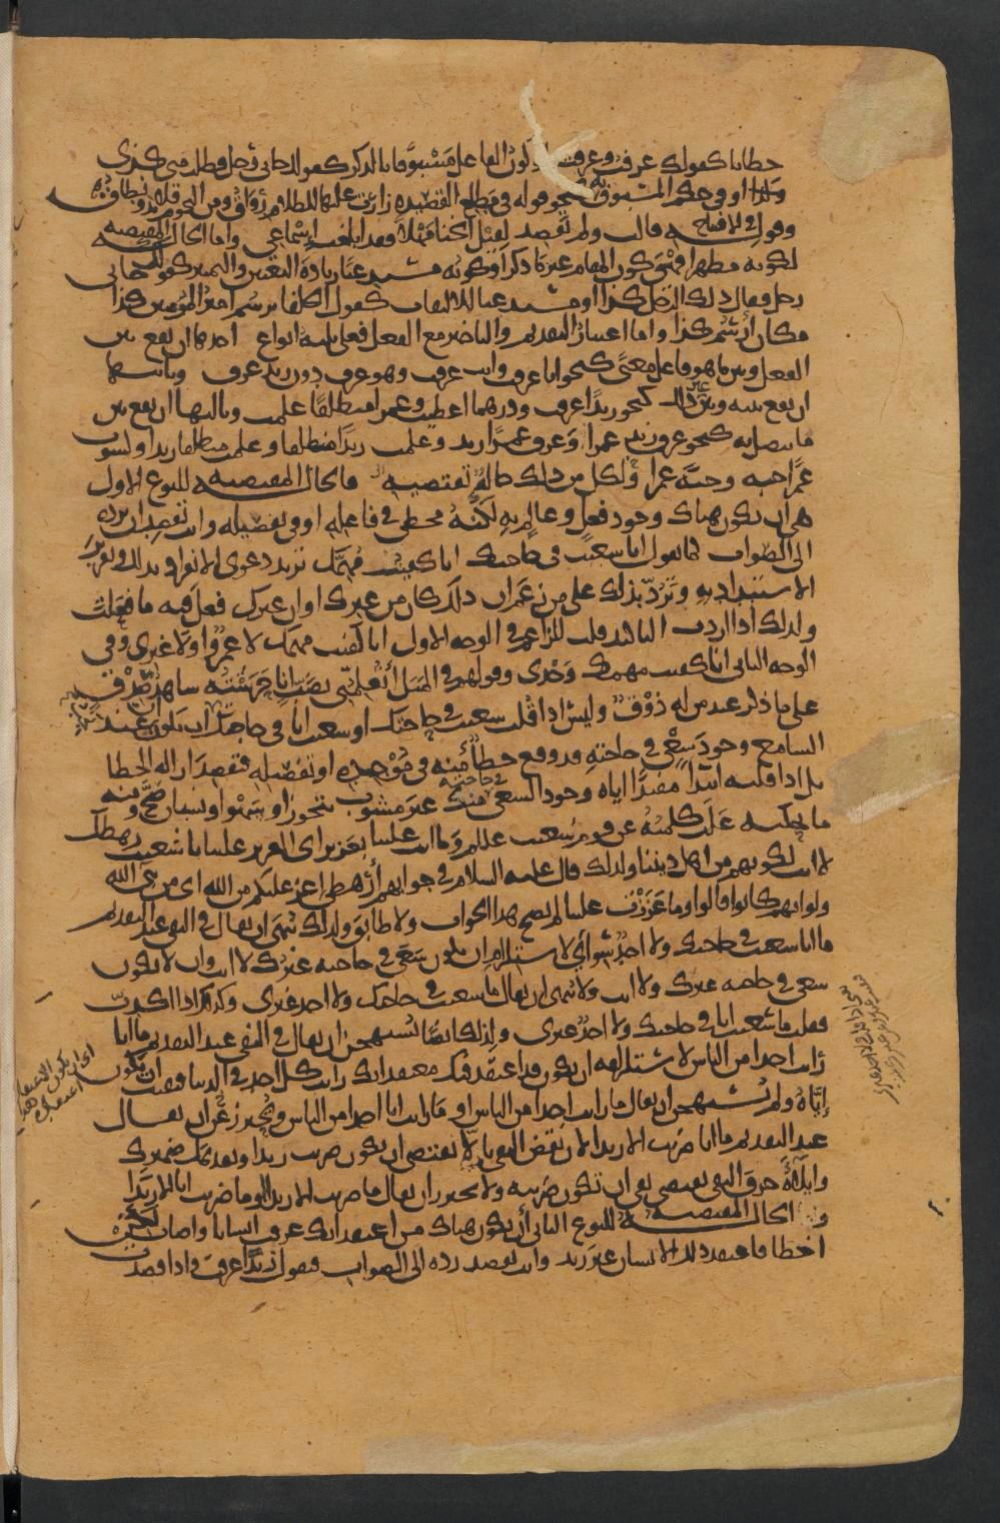 خطابا كقولك عرفت وعرفت او كون الفاعل مسبوقا بالذكر كقولك جاءني رجل فطلب مني كذى
وكذا او في حكم المسبوق به نحو قوله في مطلع القصيدة زارت عليها للظلام رواق ومن النجوم قلائد ونطاق
وقوله في الافتتاح قالت ولم تقصد لقيل الخنا مهلا فقد ابلغت اسماعي واما الحال المقتضية
لكونه مظهرا فهي كون المقام غير ما ذكر او كونه مستدعيا زيادة التعيين والتمييز كقولك جاءني
رجل فقال ذلك الرجل كذا او مستدعيا للالتفات كقول الخلفا يرسم امير المؤمنين كذا
مكان ارسم كذا واما اعتبار التقديم والتاخير مع الفعل فعلى ثلثة انواع احدها ان يقع بين
الفعل وبين ما هو فاعل معنى كنحو انا عرفت وانت عرفت وهو عرف دون زيد عرف وثانيها
ان يقع بينه وبين غير ذلك كنحو زيدا عرفت ودرهما اعطيت وعمرا منطلقا علمت وثالثها ان يقع بين
ما يتصل به كنحو عرف زيد عمرا وعرف عمرا زيد وعلمت زيدا منطلقا وعلمت منطلقا زيدا وكسوت
عمرا جبة وجبة عمرا ولكل من ذلك حالة تقتضيه فالحال المقتضية للنوع الاول
هي ان يكون هناك وجود فعل وعالم به لكنه مخطئ في فاعله او في تفصيله وانت تقصد ان ترده
الى الصواب كما تقول انا سعيت في حاجتك انا كفيت مهمك تريد دعوى الانفراد بذلك وتقرير
الاستبداد به وترد بذلك على من زعم ان ذلك كان من غيرك او ان غيرك فعل فيه ما فعلت
ولذلك اذا اردت التاكيد قلت للزاعم في الوجه الاول انا كفيت مهمك لا عمرو او لا غيري وفي
الوجه الثاني انا كفيت مهمك وحدي وقولهم في المثل أتعلمني بضب انا حرشته شاهد صدق
على ما ذكر عند من له ذوق وليس اذا قلت سعيت في حاجتك او سعيت انا في حاجتك ان يكون عند
السامع وجود سعي في حاجته قد وقع خطأ منه في موجده او تفصيله فتقصد ازالة الخطا
بل اذا قلته ابتداء مفيدا اياه وجود السعي في حاجته منك غير مشوب بتجوز او سهو او نسيان صح ومنه
ما يحكيه علت كلمته عن قوم شعيب عليلم وما انت علينا بعزيز اي العزيز علينا يا شعيب رهطك
لا انت لكونهم من اهل ديننا ولذلك قال عليه السلام في جوابهم أرهطي اعز عليكم من الله اي من نبي الله
ولو انهم كانوا قالوا وما عززت علينا لم يصح هذا الجواب ولا طابق ولذلك نهي ان يقال في النفي عند التقديم
ما انا سعيت في حاجتك ولا احد سواي لاستلزام ان يكون سعى في حاجته غيرك لا انت وان لا يكون
سعى في حاجته غيرك ولا انت ولا نهي ان يقال ما سعيت في حاجتك ولا احد غيري وكذلك اذا اكدت
فقلت ما سعيت انا في حاجتك ولا احد غيري ولذلك ايضا يستهجن ان يقال في النفي عند التقديم ما انا
رايت احدا من الناس لاستلزامه ان يكون قد اعتقد فيك معتقد انك رايت كل احد في الدنيا فنفيت ان يكون
اياه ولم يستهجن ان يقال ما رايت احدا من الناس او ما رايت انا احدا من الناس ويحترز عن ان يقال
عند التقديم ما انا ضربت الا زيدا لان نقض النفي بالا يقتضي ان يكون ضربت زيدا وتقديمك ضميرك
وايلاؤه حرف النفي يقتضي نفي ان تكون ضربته ولا يحترز ان يقال ما ضربت الا زيدا او ما ضربت انا الا زيدا
والحال المقتضية للنوع الثاني ان يكون هناك من اعتقد انك عرفت انسانا واصاب لكن
اخطا فاعتقد ذلك الانسان غير زيد وانت تقصد رده الى الصواب فتقول زيدا عرفت واذا قصدت